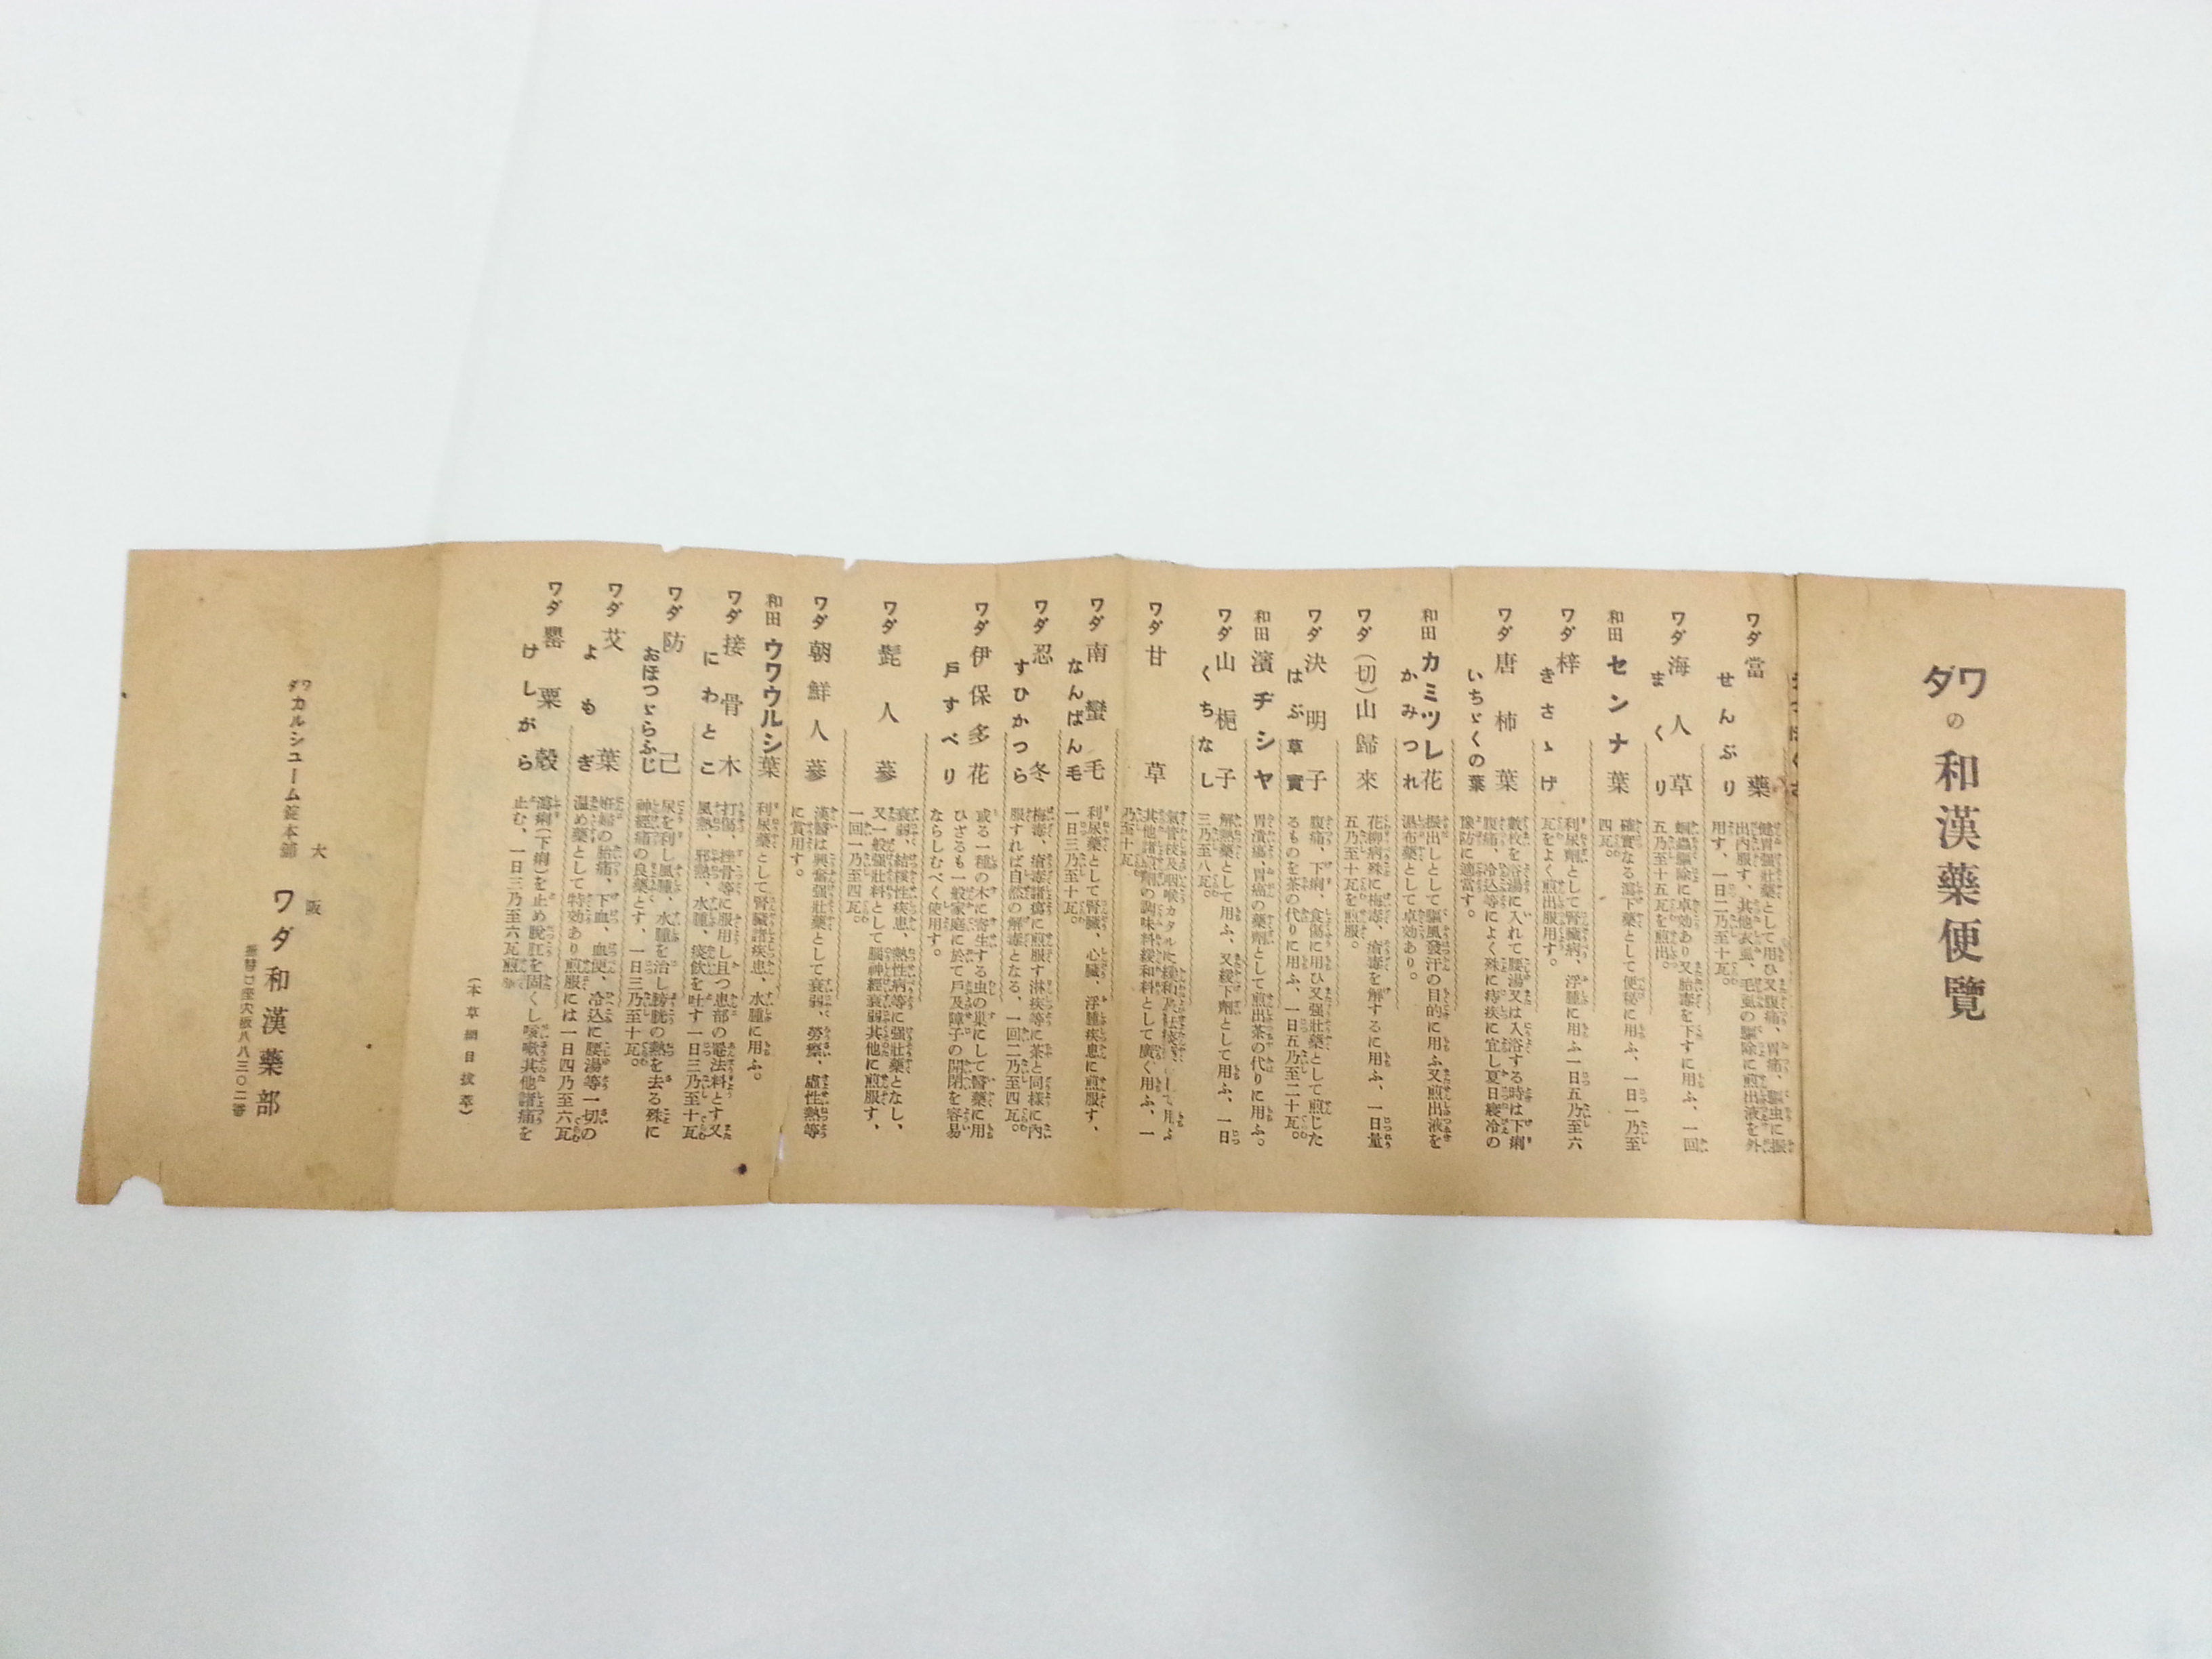 ワダの和漢藥便覽
ワダ當藥
せんぶり
健胃强壯藥として用ひ又腹痛、胃痛、驅虫に振
出內服す、其他衣虱、毛虱の驅除に煎出液を外
用す、一日二乃至十瓦。
ワダ海人草
まくり
蛔蟲驅除に卓効あり又胎毒を下すに用ふ、一回
五乃至十五瓦を煎出。
和田センナ葉
確實なる瀉下藥として便秘に用ふ、一日一乃至
四瓦。
ワダ梓
きさゝげ
利尿劑として腎臟病、浮腫に用ふ一日五乃至六
瓦をよく煎出服用す。
ワダ唐柿葉
いちゞくの葉
數枚を浴湯に入れて腰湯又は入浴する時は下痢
腹痛、冷込等によく殊に痔疾に宜し夏日寢冷の
豫防に適當す。
和田カミツレ花
かみつれ
振出しとして驅風發汗の目的に用ふ又煎出液を
濕布藥として卓効あり。
ワダ(切)山歸來
花柳病殊に梅毒、瘡毒を解するに用ふ、一日量
五乃至十瓦を煎服。
ワダ決明子
はぶ草實
腹痛、下痢、食傷に用ひ又强壯藥として煎じた
るものを茶の代りに用ふ、一日五乃至二十瓦。
和田濱ヂシヤ
胃潰瘍、胃癌の藥劑として煎出茶の代りに用ふ。
ワダ山梔子
くちなし
解熱藥として用ふ、又緩下劑として用ふ、一日
三乃至八瓦。
ワダ甘草
氣管枝及咽喉カタルに緩和及祛痰等として用ふ
其他諸煎劑の調味料緩和料として廣く用ふ、一
乃至十瓦。
ワダ南蠻毛
なんばん毛
利尿藥として腎臟、心臟、浮腫疾患に煎服す、
一日三乃至十瓦。
ワダ忍冬
すひかつら
梅毒、瘡毒諸瘍に煎服す淋疾等に茶と同樣に內
服すれば自然の解毒となる、一回二乃至四瓦。
ワダ伊保多花
戶すべり
或る一種の木に寄生する虫の巢にして醫藥に用
ひざるも一般家庭に於て戶及障子の開閉を容易
ならしむべく使用す。
ワダ髭人蔘
衰弱、結核性疾患、熱性病等に强壯藥となし、
又一般强壯料として腦神經衰弱其他に煎服す、
一回一乃至四瓦。
ワダ朝鮮人蔘
漢醫は興奮强壯藥として衰弱、勞瘵、虛性熱等
に賞用す。
和田ウワウルシ葉
利尿藥として腎臟諸疾患、水腫に用ふ。
ワダ接骨木
にわとこ
打傷、挫骨等に服用し且つ患部の罨法料とす又
風熱、邪熱、水腫、痰飮を吐す一日三乃至十瓦
ワダ防己
おほつゞらふじ
尿を利し風腫、水腫を治し膀胱の熱を去る殊に
神經痛の良藥とす、一日三乃至十瓦。
ワダ艾葉
よもぎ
姙婦の胎痛、下血、血便、冷込に腰湯等一切の
溫め藥として特効あり煎服には一日四乃至六瓦
ワダ罌粟殼
けしがら
瀉痢(下痢)を止め脫肛を固くし咳嗽其他諸痛を
止む、一日三乃至六瓦煎
(本草綱目拔萃)
大阪
ワダカルシユーム錠本鋪
ワダ和漢藥部
振替口座大阪八八三〇二番